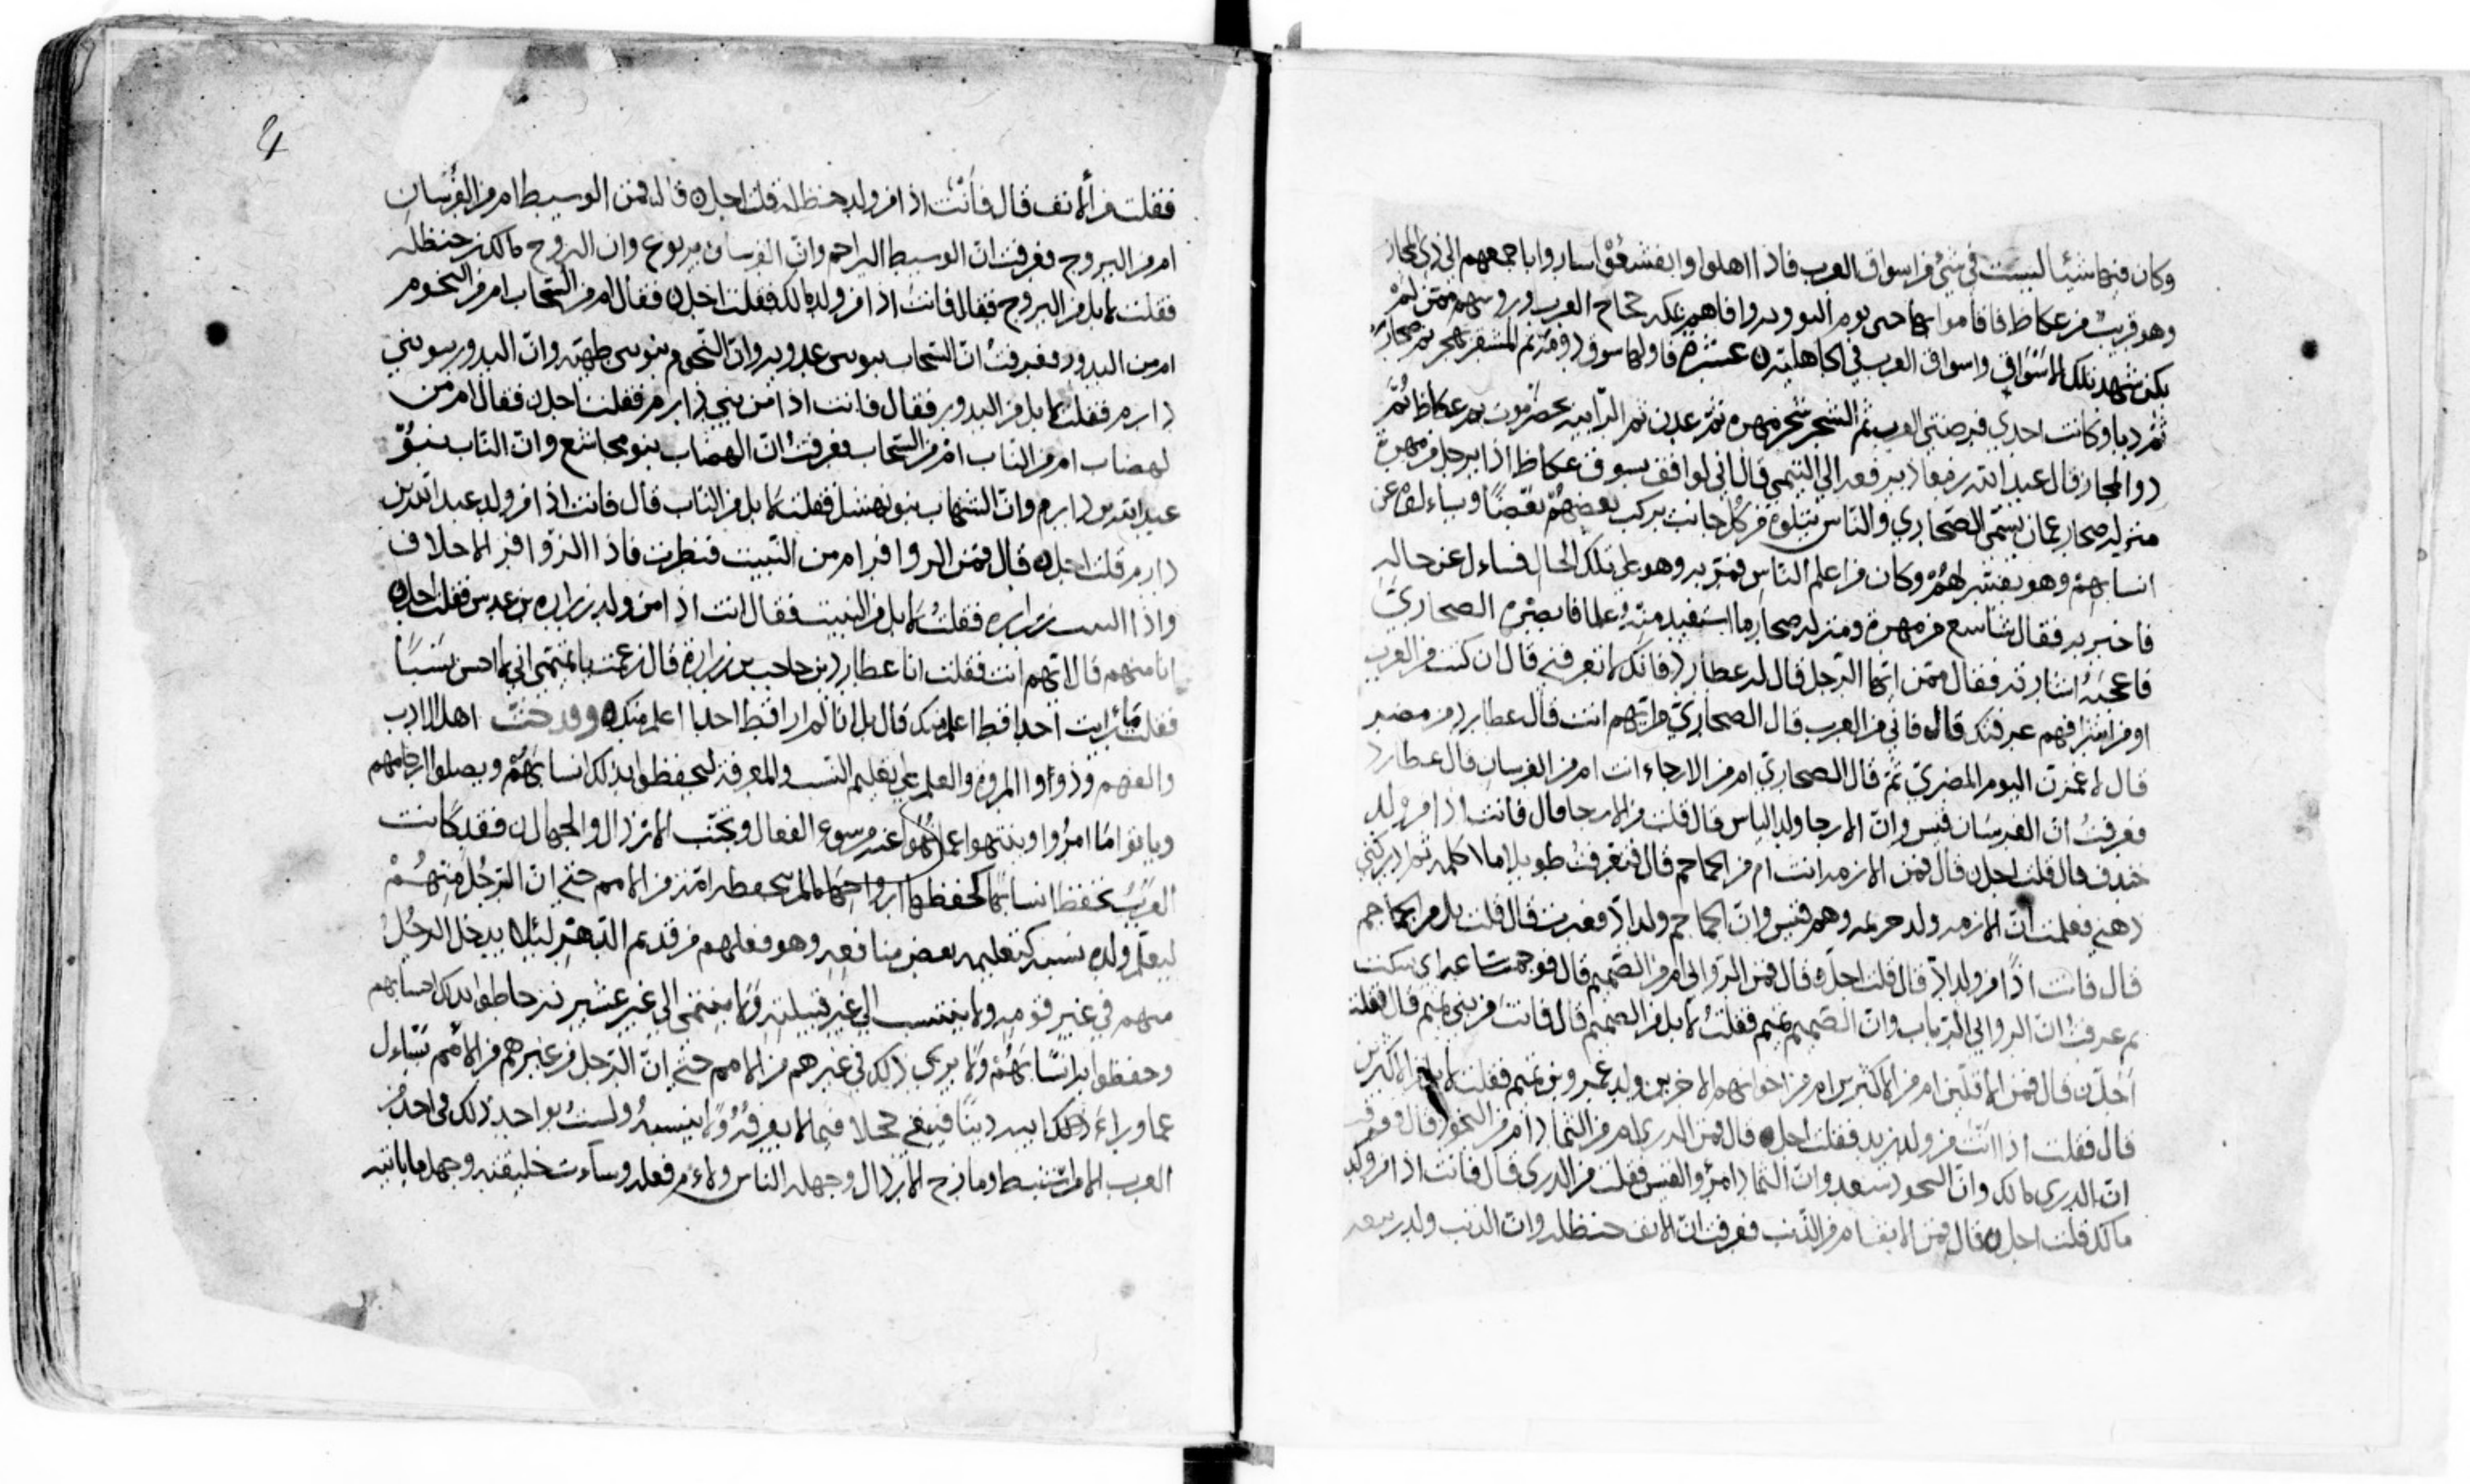 وكان فيها شيئا ليست في شيء من اسواق العرب فاذا اهلوا وانقشعوا ساروا باجمعهم الى ذي المجاز
وهو قريب من عكاظ فاقاموا بها حتى يوم التروية ووافاهم بمكة حجاج العرب ورؤسهم ممن لم
يكن شهد تلك الاسواق واسواق العرب في الجاهلية عشرة فاولها سوق دومة ثم المشقر بهجر ثم صحار
ثم دبا وكانت احدى فرضتي العرب ثم الشحر شحر مهرة ثم عدن ثم الرابية بحضرموت ثم عكاظ ثم
ذو المجاز قال عبد الله بن معاذ يرفعه الى التيمي قال اني لواقف بسوق عكاظ اذا برجل من مهرة
منزله صحار عمان يسمى الصحاري والناس يتلونه من كل جانب يركب بعضهم بعضا ويساءلونه عن
انسابهم وهو يفسر لهم وكان من اعلم الناس فمر به وهو على تلك الحال فساءل عن حاله
فاخبر به فقال شاسع من مهرة ومنزله صحار ما استفيد منه علما فابصره الصحاري
فاعجبه اشارته فقال ممن ايها الرجل قال له عطارد فانك لا تعرفني قال ان كنت من العرب
او من اشرافهم عرفتك قال فاني من العرب قال الصحاري من ايهم انت قال عطارد من مضر
قال لاعمزن اليوم المضري ثم قال الصحاري امن الارحاء انت ام من الفرسان قال عطارد
فعرفت ان الفرسان قيس وان الارحا ولد الياس قال قلت من الارحا قال فانت اذا من ولد
خندف قال قلت اجل قال فمن الازمة انت ام من الجماجم قال فعرفت طويلا ما اكلمه ثم ادركني
ذهني فعلمت ان الازمه ولد خزيمه وهم وان الجماجم ولد اد فعرفت قال قلت بل من الجماجم
قال فانت اذا من ولد اد قال قلت اجل قال فمن الروابي ام من الصميم قال فوجمت ساعة اي سكت
ثم عرفت ان الروابي الرباب وان الصميم تميم فقلت لا بل من الصميم قال فانت من بني تميم قال فقلت
اجل قال فمن الاقلين ام من الاكثرين ام من اخوانهم الاخرين ولد عمرو بن تميم فقلت لا بل من الاكثرين
قال فقلت اذا انت من ولد زيد فقلت اجل قال فمن الذرى ام من الثماد ام من البحور قال فعرفت
ان الذرى مالك وان البحور سعد وان الثماد امرؤ القيس فقلت من الذرى قال فانت اذا من ولد
مالك قلت اجل قال فمن الانف ام من الذنب فعرفت ان الانف حنظله وان الذنب ولد ربيعه
4
فقلت من الانف قال فانت اذا من ولد حنظلة قلت اجل قال فمن الوسيط ام من الفرسان
ام من البروج فعرفت ان الوسيط البراجم وان الفرسان يربوع وان البروج مالك بن حنظله
فقلت لا بل من البروج فقال فانت اذا من ولد مالك فقلت اجل فقال ام من السحاب ام من النجوم
ام من البدور فعرفت ان السحاب بنو بني عدويه وان النجوم بنو بني طهية وان البدور بنو بني
دارم فقلت لا بل من البدور فقال فانت اذا من بني دارم فقلت اجل فقال ام من
لهضاب ام من الناب ام من السحاب فعرفت ان الهضاب بنو مجاشع وان الناب بنو
عبد الله بن دارم وان الشهاب بنو نهشل فقلت لا بل من الناب قال فانت اذا من ولد عبد الله بن
دارم قلت اجل قال فمن الزوافر ام من البيت فنظرت فاذا الزوافر الاحلاف
واذا البيت زراره فقلت لا بل من البيت فقال انت اذا من ولد زراره بن عدس فقلت اجل
انا منهم قال ايهم انت فقلت انا عطارد بن حاجب بن زرارة قال زعمت يا تميمي اني لا احسن نسبا
فقلت ما رايت احدا قط اعلم منك قال بل انا لم ار قط احدا اعلم منك وقد حثت اهل الادب
والفهم وذووا المروة والعلم على تعليم النسب والمعرفة ليحفظوا بذلك انسابهم ويصلوا ارحامهم
وياتوا ما امروا وينتهوا عما نهوا عنه من سوء الفعال وتجنب الارذال والجهال فقد كانت
العرب تحفظ انسابها كحفظها ارواحها ما لم يحفظه امة من الامم حتى ان الرجل منهم
ليعلم ولده نسبه كتعليمه بعض منافعه وهو فعلهم من قديم الدهر لئلا يدخل الرجل
منهم في غير قومه ولا ينتسب الى غير قبيلته ولا ينتمي الى غير عشيرته حاطوا بذلك احسابهم
وحفظوا به انسابهم ولا يرى ذلك في غيرهم من الامم حتى ان الرجل من غيرهم من الامم تساءل
عما وراء ذلك ابيه دينا فيبقى خجلا فيما لا يعرفه ولا ينسبه ولست بواجد ذلك في احد من
العرب الا من استنبط ومازح الارذال وجهله الناس ولاءم فعله وساءت خليقته وجهل ما ياتيه